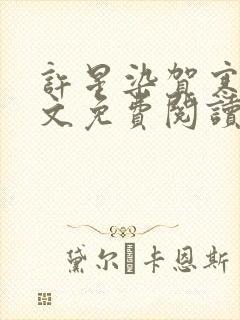 許星染賀
文免費閱讀
黛尔 卡恩斯